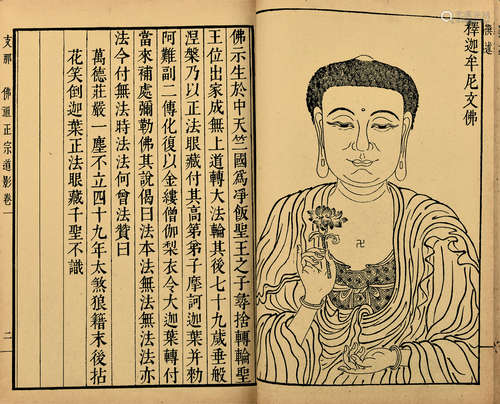 釋迦牟尼文佛
佛示生於中天竺國為淨飯聖王之子蕚捨轉輪聖
王位出家成無上道轉大法輪其後七十九歲垂般
涅槃乃以正法眼藏付其高第弟子摩訶迦葉并勑
阿難副二傳化復以金縷僧伽梨衣令大迦葉轉付
當來補處彌勒佛其說偈曰法本法無法無法法亦
法今付無法時法法何曾法贊曰
萬德莊嚴一塵不立四十九年太煞狼籍末後拈
花笑倒迦葉正法眼藏千聖不識
支那
佛祖正宗道影卷一
二